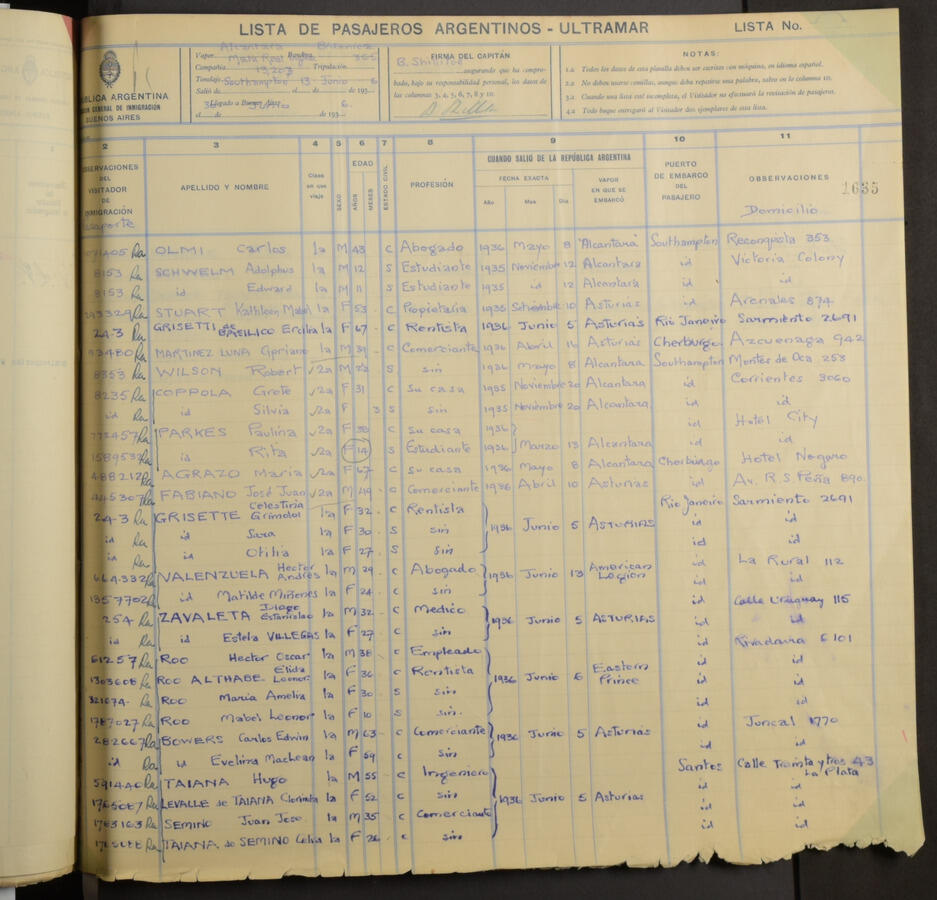 LISTA DE PASAJEROS ARGENTINOS - ULTRAMAR LISTA No.
Vapor Alcantara Bandera Britanica
Compañía Mala Real Inglesa Tripulación 365
Tonelaje 13,203
Salió de Southampton el 13 de Junio de 1936
Llegado a Buenos Aires
el de Junio de 1936.
FIRMA DEL CAPITÁN
B. Shillitoe
asegurando que ha comprobado, bajo su responsabilidad personal, los datos de las columnas 3, 4, 5, 6, 7, 8 y 10.
NOTAS:
1.a Todos los datos de esta planilla deben ser escritos con máquina, en idioma español.
2.a No deben usarse comillas, aunque deba repetirse una palabra, salvo en la columna 10.
3.a Cuando una lista esté incompleta, el Visitador no efectuará la revisación de pasajeros.
4.a Todo buque entregará al Visitador dos ejemplares de esta lista.
PÚBLICA ARGENTINA
GENERAL DE INMIGRACIÓN
BUENOS AIRES
2 3 4 5 6 7 8 9 10 11
OBSERVACIONES DEL VISITADOR DE INMIGRACIÓN
APELLIDO Y NOMBRE
Clase en que viaje
SEXO
EDAD
AÑOS
MESES
ESTADO CIVIL
PROFESIÓN
CUANDO SALIÓ DE LA REPÚBLICA ARGENTINA
FECHA EXACTA
Año Mes Día
VAPOR EN QUE SE EMBARCÓ
PUERTO DE EMBARCO DEL PASAJERO
OBSERVACIONES
1635
Domicilio
OLMI Carlos 1a M 43 C Abogado 1936 Mayo 8 "Alcantara" Southampton Reconquista 353
8153 SCHWELM Adolphus 1a M 12 S Estudiante 1935 Noviembre 12 Alcantara id Victoria Colony
8153 id Edward 1a M 11 S Estudiante 1935 id 12 Alcantara id id
STUART Kathleen Mabel 1a F 53 C Propietaria 1935 Setiembre 10 Asturias id Arenales 874
24-3 GRISETTI de BASILICO Ercilia 1a F 67 C Rentista 1936 Junio 5 Asturias Rio Janeiro Sarmiento 2691
93480 MARTINEZ LUNA Cipriano 1a M 39 C Comerciante 1936 Abril 16 Asturias Cherburgo Azcuenaga 942
8353 WILSON Robert 2a M 22 S sin 1936 Mayo 8 Alcantara Southampton Montes de Oca 253
8235 COPPOLA Grete 2a F 31 C su casa 1935 Noviembre 20 Alcantara id Corrientes 3060
id id Silvia 2a F 3 S sin 1935 Noviembre 20 Alcantara id id
PARKES Paulina 2a F 38 C su casa 1936 id Hotel City
id Rita 2a F 14 S Estudiante 1936 Marzo 13 Alcantara id id
488212 AGRAZO Maria 2a F 67 C su casa 1936 Mayo 8 Alcantara Cherburgo Hotel Nogaro
445307 FABIANO José Juan 2a M 49 C Comerciante 1936 Abril 10 Asturias id Av. R.S. Peña 890
24-3 GRISETTE Celestina Grimoldi 1a F 32 C Rentista Rio Janeiro Sarmiento 2691
id id Sara 1a F 30 S sin 1936 Junio 5 ASTURIAS id id
id id Otilia 1a F 27 S sin id id
664332 VALENZUELA Hector Andres 1a M 29 C Abogado 1936 Junio 13 American Legion id La Rural 112
1357702 id Matilde Miñenes 1a F 24 C sin id id
254 ZAVALETA Diego Estanislao 1a M 32 C Medico 1936 Junio 5 ASTURIAS id Calle Uruguay 115
id id Estela VILLEGAS 1a F 27 C sin id id
61257 ROO Hector Oscar 1a M 38 C Empleado id Rivadavia 6101
1303608 ROO ALTHABE Elida Leonor 1a F 36 C Rentista 1936 Junio 6 Eastern Prince id id
321074 ROO Maria Amelia 1a F 30 S sin id id
1787027 ROO Mabel Leonor 1a F 10 S sin id id
282667 BOWERS Carlos Edwin 1a M 63 C Comerciante 1936 Junio 5 Asturias id Juncal 1770
id id Evelina MacLean 1a F 59 C sin id id
591440 TAIANA Hugo 1a M 55 C Ingeniero Santos Calle Treinta y tres 43 La Plata
1765087 LEVALLE de TAIANA Clorinda 1a F 52 C sin 1936 Junio 5 Asturias id id
1763163 SEMINO Juan Jose 1a M 35 C Comerciante id id
TAIANA de SEMINO Celia 1a F 26 C sin id id